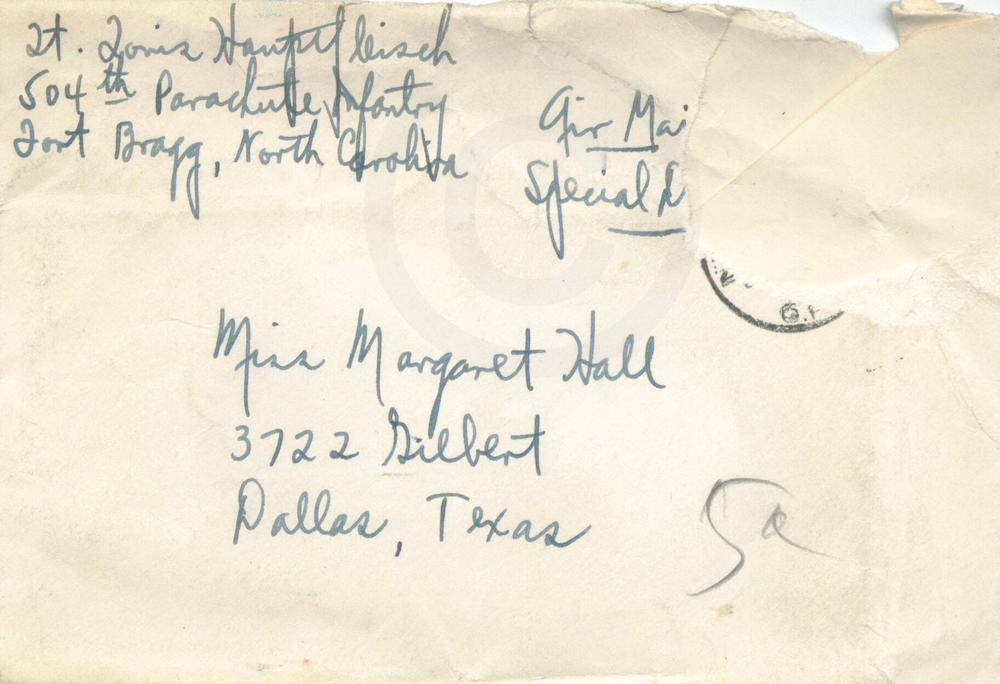 Lt. Louis Hauptfleisch
504th Parachute Infantry
Fort Bragg, North Carolina
Air Mai
Special D
Miss Margaret Hall
3722 Gilbert
Dallas, Texas